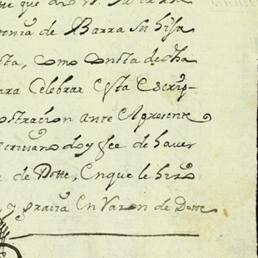 me que
onia de Barra su hija
sta, como consta de dha
ara Celebrar esta escrip-
ostracion ante el presente
scrivano doy fee de haver
de Dotte, en que le hizo
y graçia en razon de Dotte